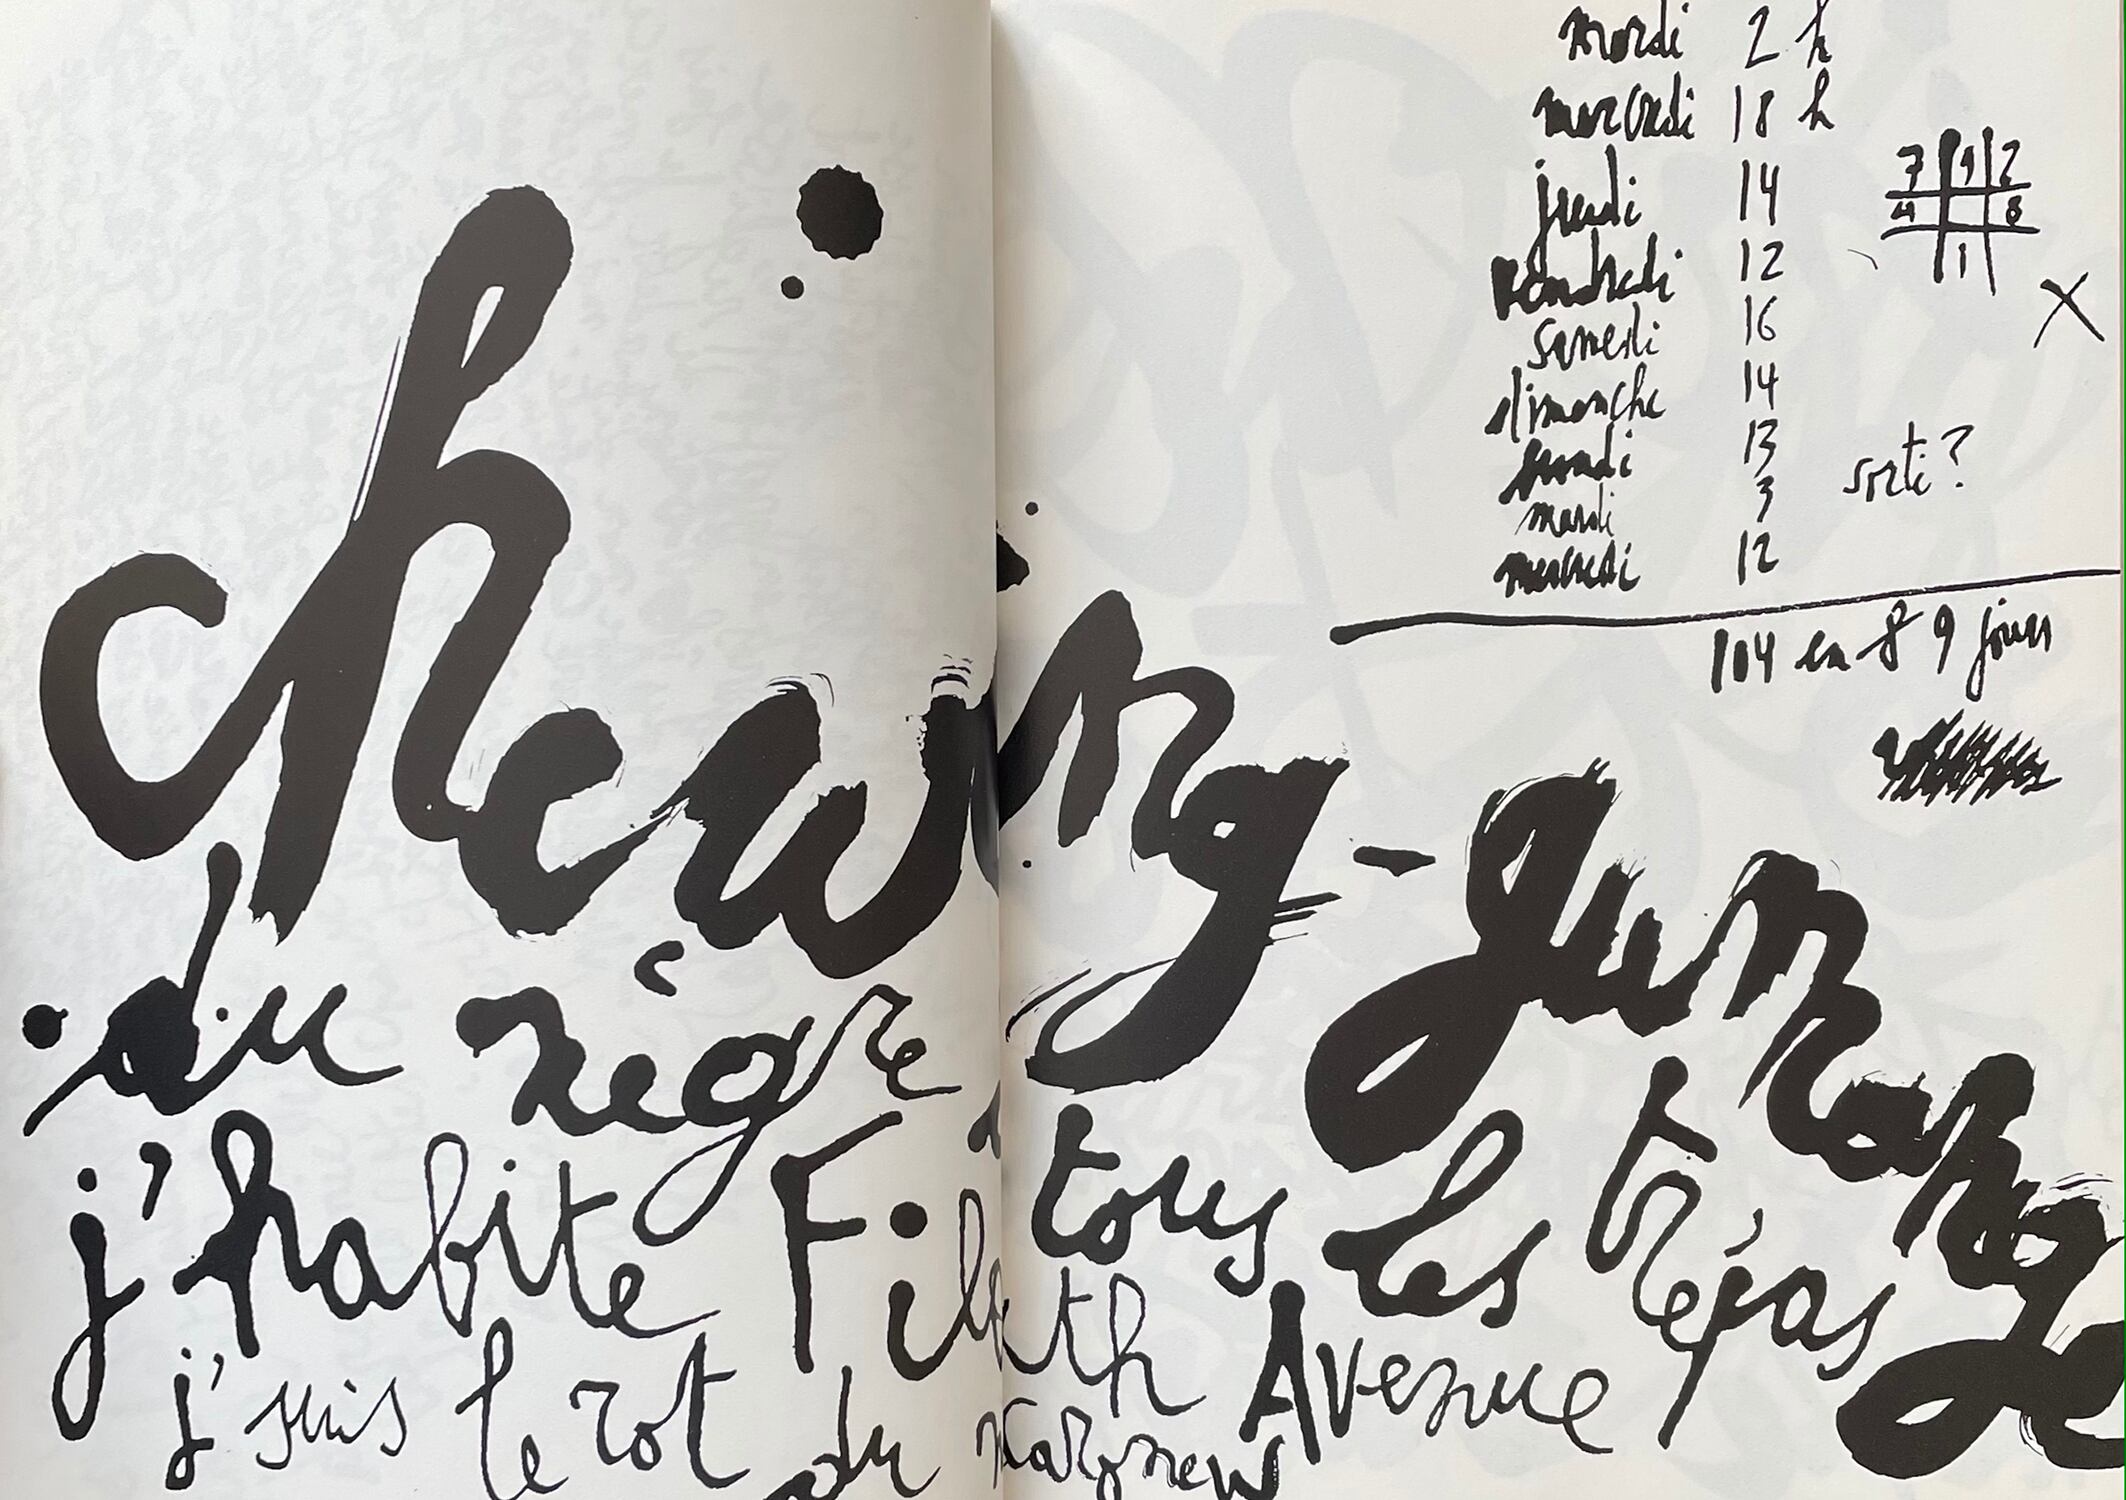 mardi 2 h
mercredi 18 h
jeudi 14
vendredi 12
samedi 16
dimanche 14
lundi 13
mardi 3 sorti?
mercredi 12
104 en 8 9 jours
7 9 2
4 8
1
X
chewing-gum orange
du nègre tous les trépas
j'habite Filath Avenue
j'suis le rot du